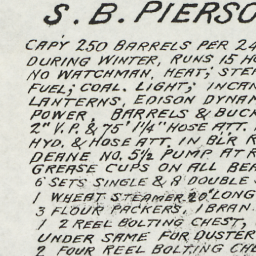 S. B. PIERSO
CAP'Y 250 BARRELS PER 24
DURING WINTER, RUNS 15 HO
NO WATCHMAN. HEAT; STEA
FUEL; COAL. LIGHT; INCAN
LANTERNS, EDISON DYNAM
POWER, BARRELS & BUCK
2" V.P. & 75' 1¼" HOSE ATT. I
HYD. & HOSE ATT. IN BL'R R
DEANE NO. 5½ PUMP AT R
GREASE CUPS ON ALL BEA
6 SETS SINGLE & 8 DOUBLE
1 WHEAT STEAMER 20' LONG
3 FLOUR PACKERS, 1 BRAN.
1 2 REEL BOLTING CHEST,
UNDER SAME FOR DUSTER
2 FOUR REEL BOLTING CHE